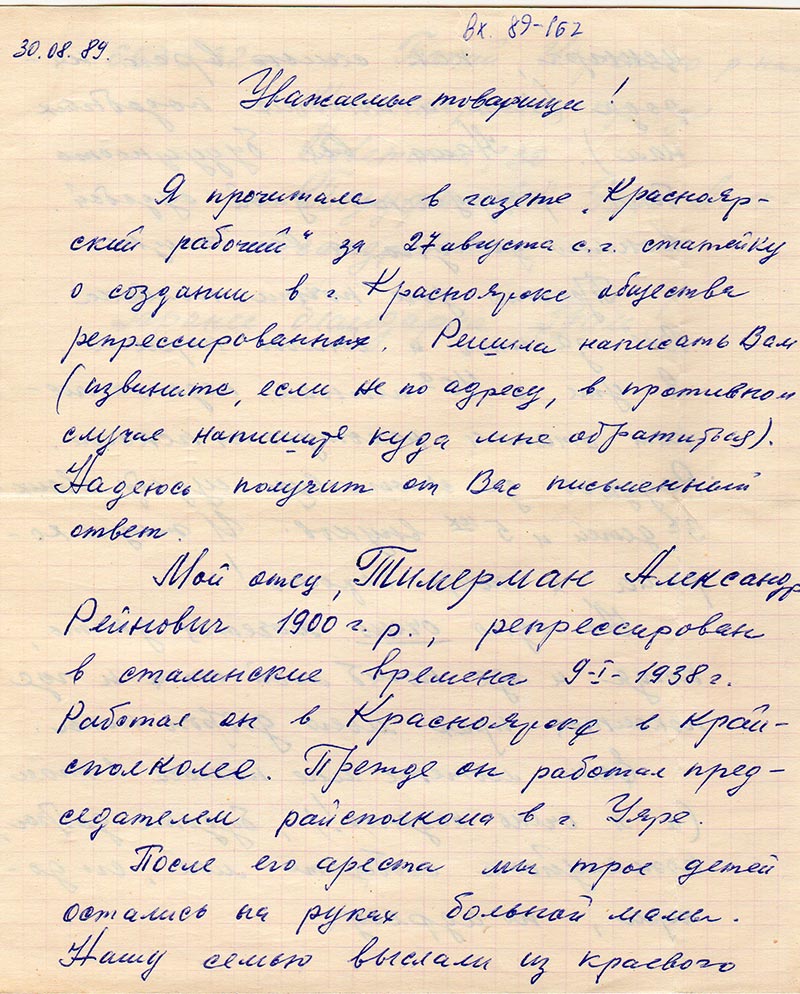 Вх. 89-162
30.08.89.
Уважаемые товарищи!
Я прочитала в газете „Краснояр-
ский рабочий" за 27 августа с.г. статейку
о создании в г. Красноярске общества
репрессированных. Решила написать Вам
(извините, если не по адресу, в противном
случае напишите куда мне обратиться).
Надеюсь получить от Вас письменный
ответ.
Мой отец, Тимерман Александр
Рейнович 1900 г. р., репрессирован
в сталинские времена 9-I-1938 г.
Работал он в Красноярске в край-
сполкоме. Прежде он работал пред-
седателем райсполкома в г. Уяре.
После его ареста мы трое детей
остались на руках больной мамы.
Нашу семью выслали из краевого